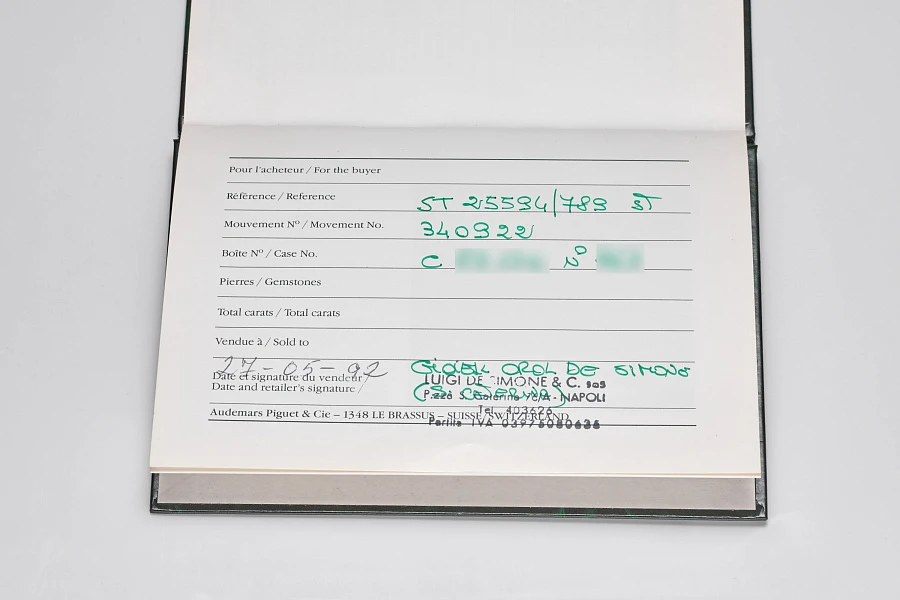 Pour l'acheteur / For the buyer
Référence / Reference ST 25594/789 ST
Mouvement Nº / Movement No. 340922
Boîte Nº / Case No. C Nº
Pierres / Gemstones
Total carats / Total carats
Vendue à / Sold to
27-05-92
DE SIMONE
Date et signature du vendeur / LUIGI DE SIMONE & C. sas
Date and retailer's signature / NAPOLI
Tel. 403626
Audemars Piguet & Cie – 1348 LE BRASSUS – SUISSE/SWITZERLAND
Partita IVA 03975080636